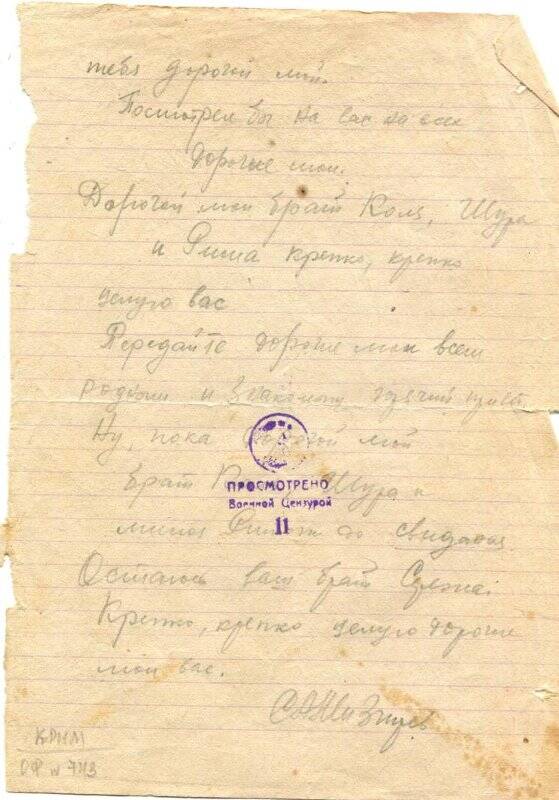 тебя дорогой мой.
Посмотрел бы на вас на всех
дорогие мои.
Дорогой мой брат Коля, Шура
и Римма крепко, крепко
целую вас
Передайте дорогие мои всем
родным и знакомым горячий привет
Ну, пока дорогой мой
брат Коля, Шура и
до свидания
Остаюсь ваш брат Сережа.
Крепко, крепко целую дорогие
мои вас.
ПРОСМОТРЕНО
Военной Цензурой
11